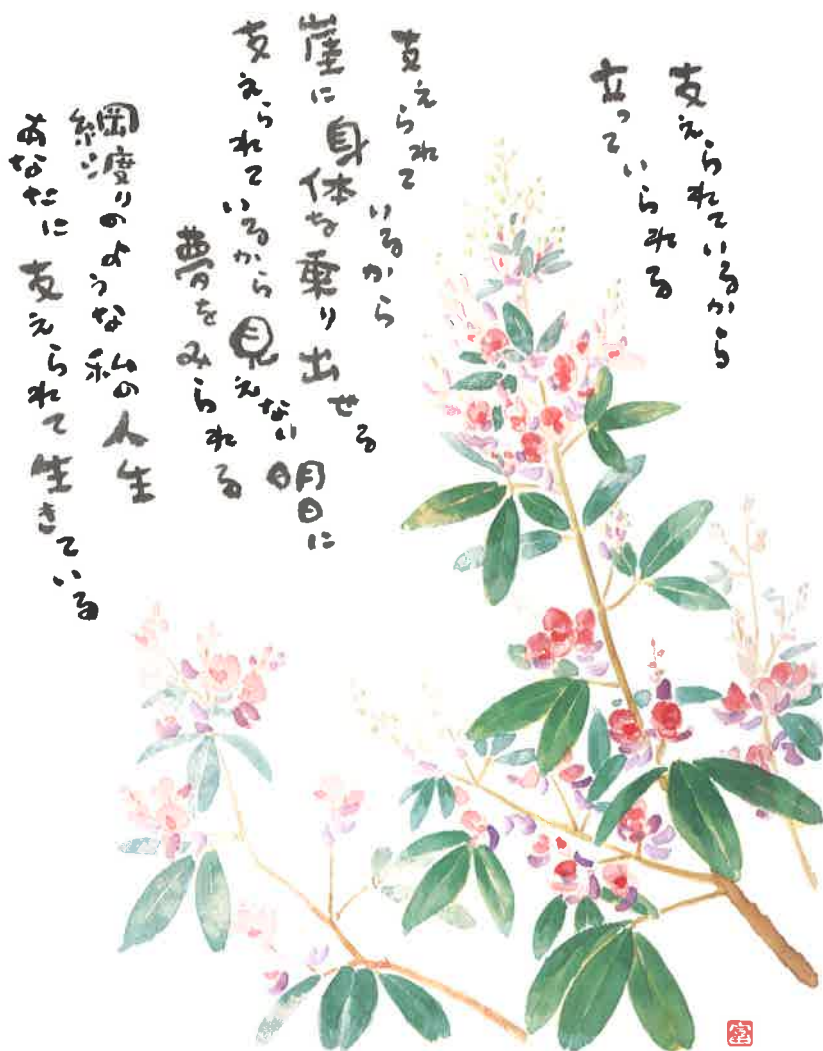 支えられているから
立っていられる
支えられているから
崖に身体を乗り出せる
支えられているから見えない明日に
夢をみられる
綱渡りのような私の人生
あなたに支えられて生きている